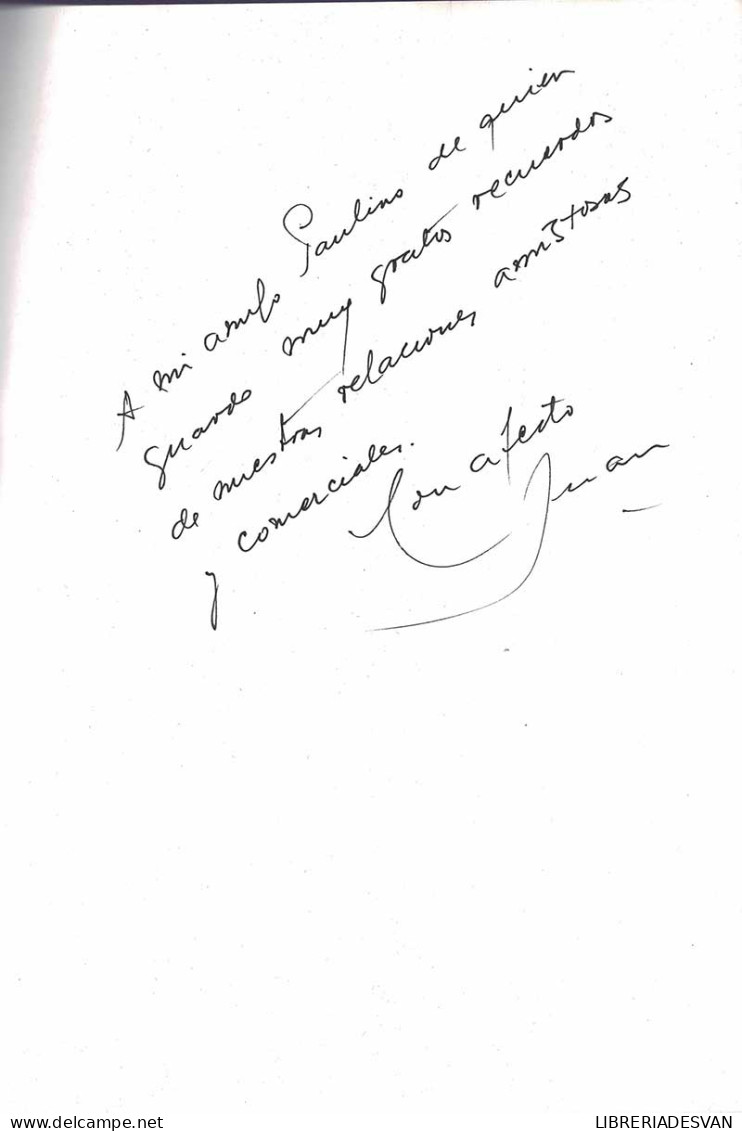 A mi amigo Paulino de quien
guardo muy gratos recuerdos
de nuestras relaciones amistosas
y comerciales.
Con afecto
Juan
delcampe.net
LIBRERIADESVAN